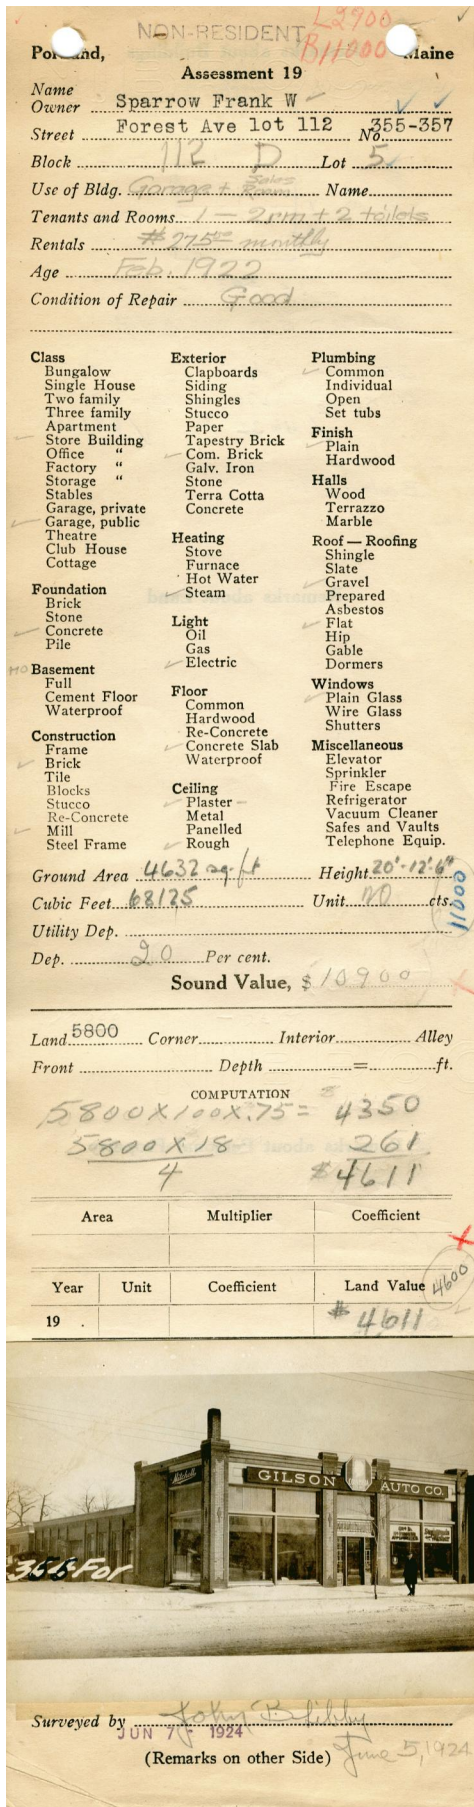 NON-RESIDENT
L2900
B11000
Portland, Maine
Assessment 19
Name
Owner Sparrow Frank W
Street Forest Ave lot 112 No. 355-357
Block 112 D Lot 5
Use of Bldg. Garage + Sales Room Name
Tenants and Rooms 1 - 2 rm + 2 toilets
Rentals #275 00 monthly
Age Feb. 1922
Condition of Repair Good
Class
Bungalow
Single House
Two family
Three family
Apartment
Store Building
Office "
Factory "
Storage "
Stables
Garage, private
Garage, public
Theatre
Club House
Cottage
Foundation
Brick
Stone
Concrete
Pile
NO Basement
Full
Cement Floor
Waterproof
Construction
Frame
Brick
Tile
Blocks
Stucco
Re-Concrete
Mill
Steel Frame
Exterior
Clapboards
Siding
Shingles
Stucco
Paper
Tapestry Brick
Com. Brick
Galv. Iron
Stone
Terra Cotta
Concrete
Heating
Stove
Furnace
Hot Water
Steam
Light
Oil
Gas
Electric
Floor
Common
Hardwood
Re-Concrete
Concrete Slab
Waterproof
Ceiling
Plaster
Metal
Panelled
Rough
Plumbing
Common
Individual
Open
Set tubs
Finish
Plain
Hardwood
Halls
Wood
Terrazzo
Marble
Roof — Roofing
Shingle
Slate
Gravel
Prepared
Asbestos
Flat
Hip
Gable
Dormers
Windows
Plain Glass
Wire Glass
Shutters
Miscellaneous
Elevator
Sprinkler
Fire Escape
Refrigerator
Vacuum Cleaner
Safes and Vaults
Telephone Equip.
Ground Area 4632 sq. ft Height 20'-12'-6"
Cubic Feet 68125 Unit 20 cts.
11000
Utility Dep.
Dep. 20 Per cent.
Sound Value, $ 10900
Land 5800 Corner Interior Alley
Front Depth = ft.
COMPUTATION
5800 X 100 X .75 = 4350
5800 X 18 261
4 $4611
Area Multiplier Coefficient
Year Unit Coefficient Land Value 4600
19 . $ 4611
Mitchell
GILSON AUTO CO.
355 For
Surveyed by John B Libby
JUN 7 - 1924
(Remarks on other Side) June 5, 1924